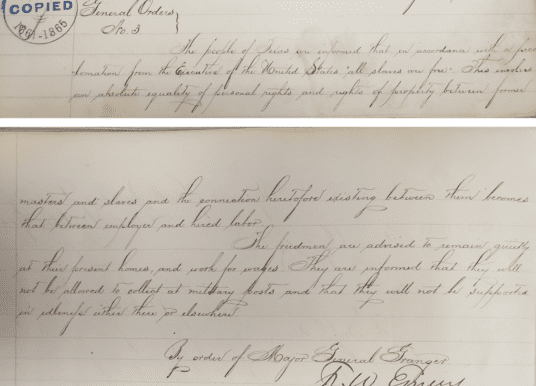 COPIED
1861-1865
General Orders
No. 3
The people of Texas are informed that in accordance with a proc
lamation from the Executive of the United States "all slaves are free." This involves
an absolute equality of personal rights and rights of property between former
masters and slaves and the connection heretofore existing between them becomes
that between employer and hired labor.
The freedmen are advised to remain quietly
at their present homes, and work for wages. They are informed that they will
not be allowed to collect at military posts and that they will not be supported
in idleness either there or elsewhere
By order of Major General Granger